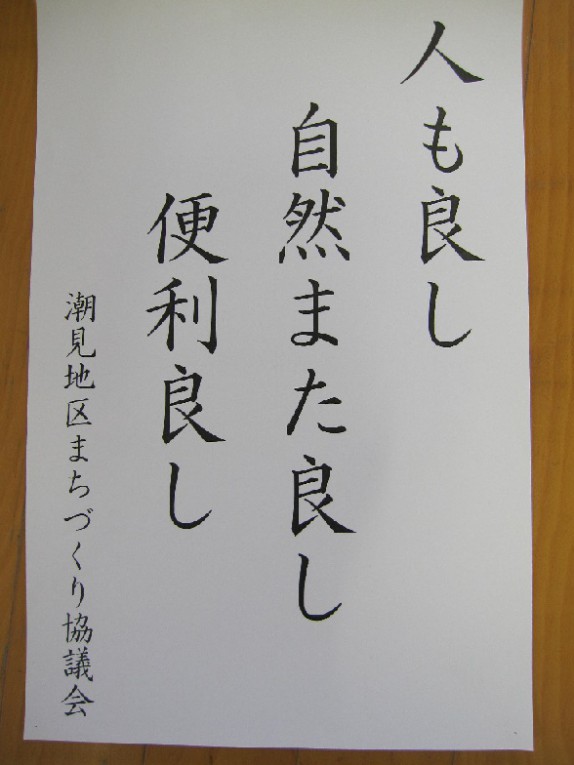 人も良し
自然また良し
便利良し
潮見地区まちづくり協議会